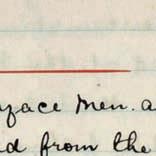 face men. a
d from the